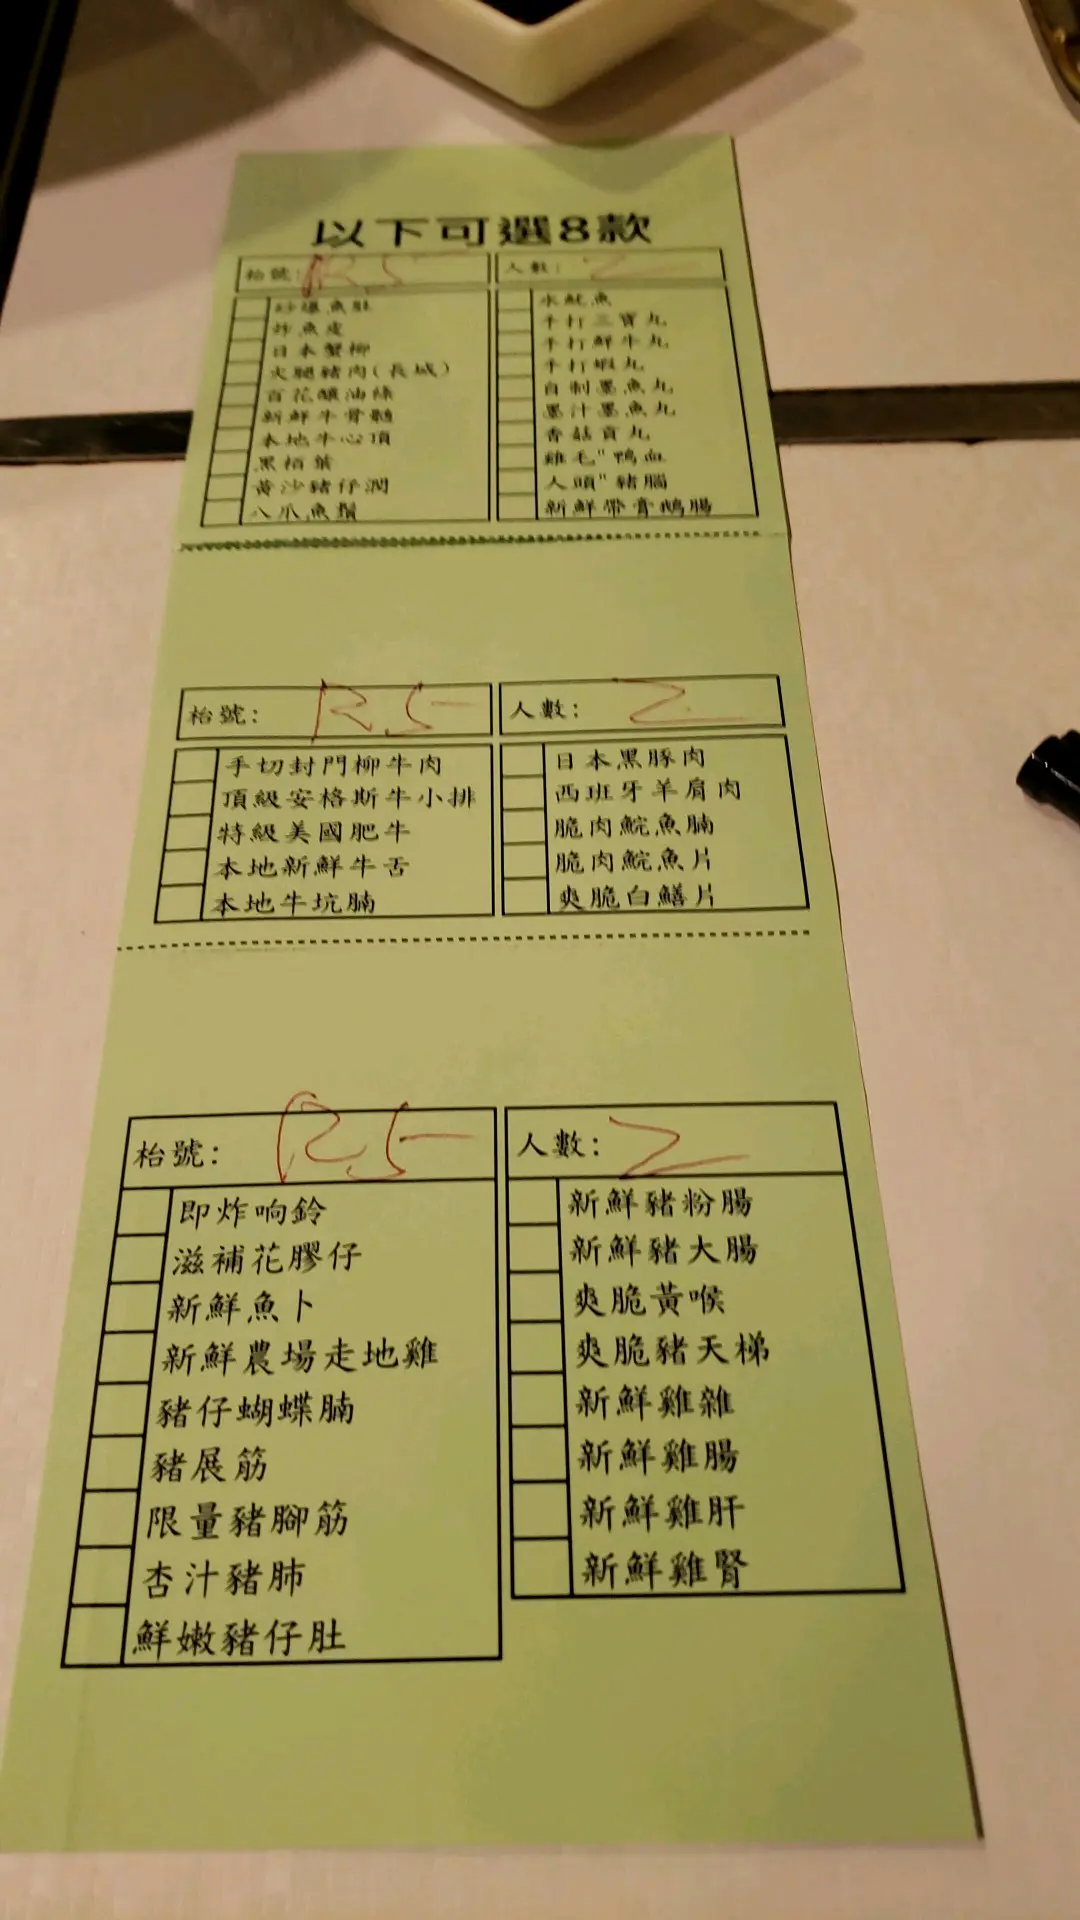 以下可選8款
枱號: R5
人數: 2
砂爆魚肚
炸魚皮
日本蟹柳
火腿豬肉(長城)
百花釀油條
新鮮牛骨髓
本地牛心頂
黑栢葉
黃沙豬仔潤
八爪魚鬚
水魷魚
手打三寶丸
手打鮮牛丸
手打蝦丸
自制墨魚丸
墨汁墨魚丸
香菇貢丸
雞毛"鴨血
人頭"豬腦
新鮮帶膏鵝腸
枱號: R5
人數: 2
手切封門柳牛肉
頂級安格斯牛小排
特級美國肥牛
本地新鮮牛舌
本地牛坑腩
日本黑豚肉
西班牙羊肩肉
脆肉鯇魚腩
脆肉鯇魚片
爽脆白鱔片
枱號: R5
人數: 2
即炸响鈴
滋補花膠仔
新鮮魚卜
新鮮農場走地雞
豬仔蝴蝶腩
豬展筋
限量豬腳筋
杏汁豬肺
鮮嫩豬仔肚
新鮮豬粉腸
新鮮豬大腸
爽脆黃喉
爽脆豬天梯
新鮮雞雜
新鮮雞腸
新鮮雞肝
新鮮雞腎